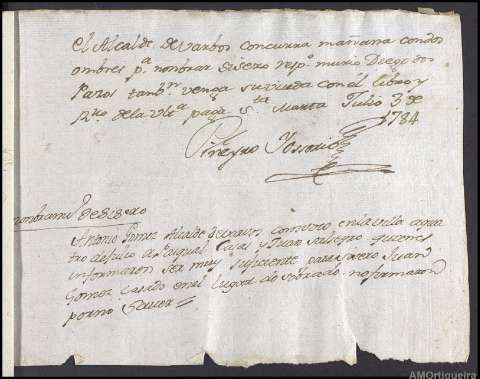 el Alcalde de varbos concurra mañana con dos
ombres pª nonbrar sisero respº murio Diego dos
Pazos tanbⁿ venga su viuda con el libro y
Rvo de la vltª paga Sta Marta Julio 3 de
1784
Piñeyro
nonbramtº de Sisero
Antonio Gomez Alcalde de varvos con voto en la villa a qua
tro de Julio a Miguel Casas y Juan quienes
informaron ser muy suficiente para sisero Juan
Gomez casado en el lugar do sobrado no formaron
por no Saver =
AMOrtigueira